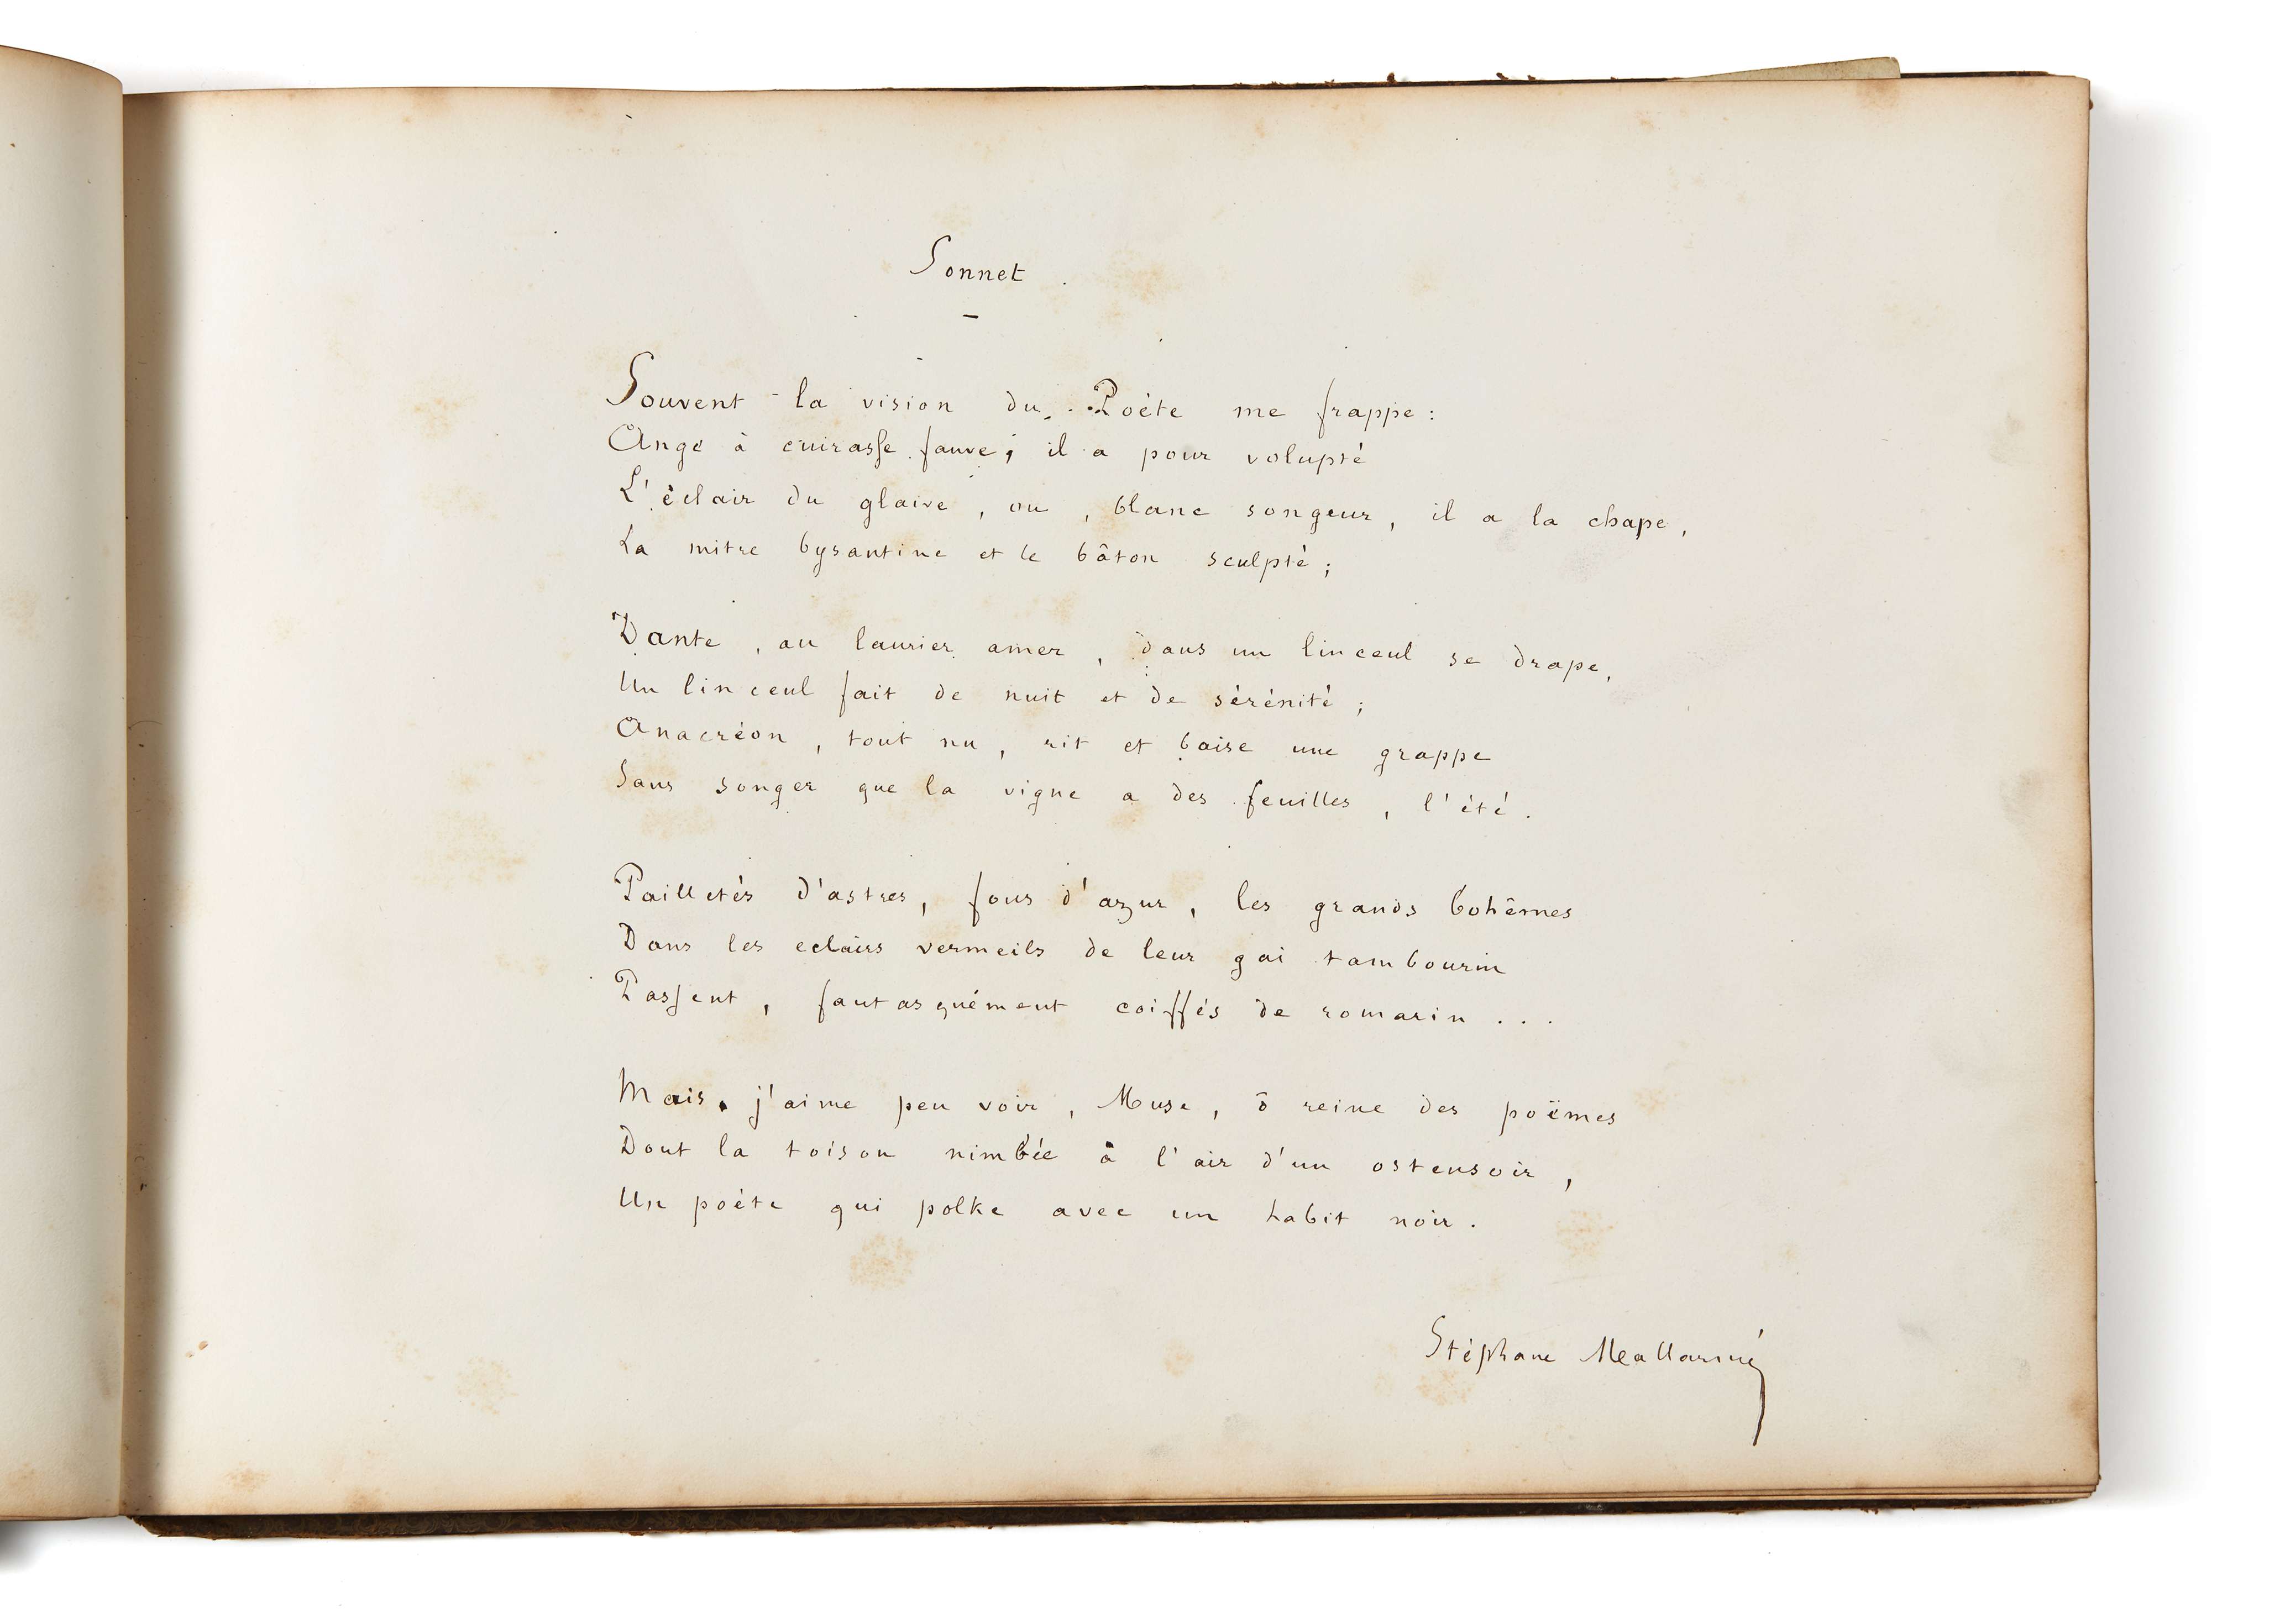 Sonnet.
Souvent la vision du Poète me frappe :
Ange à cuirasse fauve ; il a pour volupté
L'éclair du glaive, ou, blanc songeur, il a la chape,
La mitre bysantine et le bâton sculpté ;
Dante, au laurier amer, dans un linceul se drape,
Un linceul fait de nuit et de sérénité ;
Anacréon, tout nu, rit et baise une grappe
Sans songer que la vigne a des feuilles, l'été.
Pailletés d'astres, fous d'azur, les grands bohêmes
Dans les eclairs vermeils de leur gai tambourin
Passent, fantasquément coiffés de romarin ...
Mais, j'aime peu voir, Muse, ô reine des poëmes
Dont la toison nimbée à l'air d'un ostensoir,
Un poète qui polke avec un habit noir.
Stéphane Mallarmé